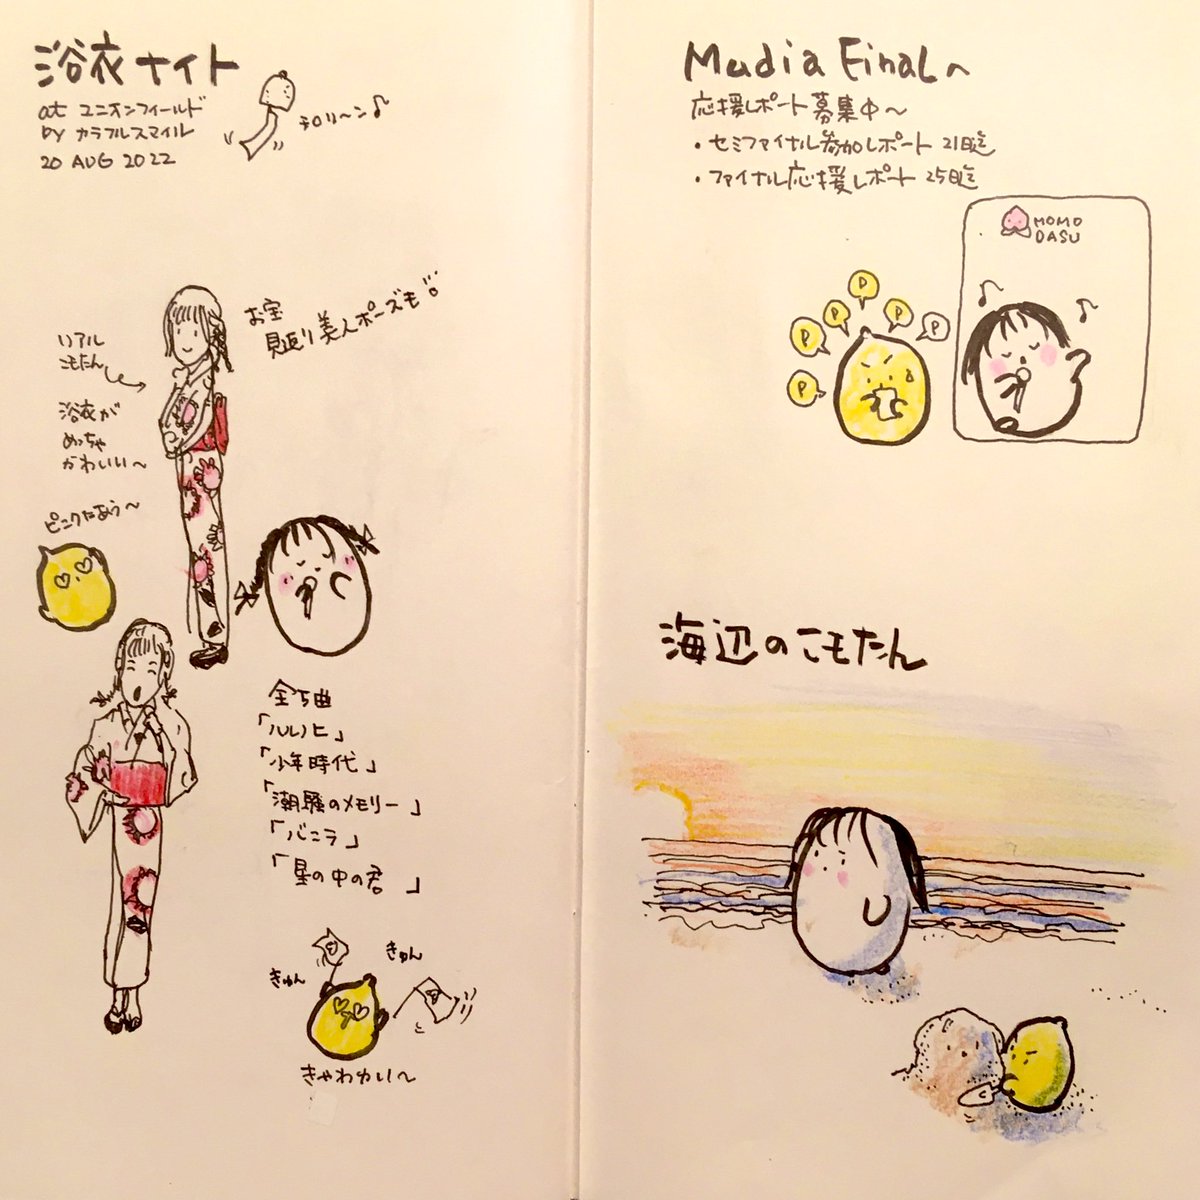 浴衣ナイト
at ユニオンフィールド
by カラフルスマイル
20 AUG 2022
チロリ〜ン♪
お宝
見返り美人ポーズも
リアル
こもたん
浴衣が
めっちゃ
かわいい〜
全5曲
「ハルノヒ」
「少年時代」
「潮騒のメモリー」
「バニラ」
「星の中の君」
きゅん
きゅん
きゃわわい〜
Mudia FinaLへ
応援レポート募集中〜
・セミファイナル参加レポート 21日迄
・ファイナル応援レポート 25日迄
MOMO
DASU
P
P
P
P
P
P
海辺のこもたん